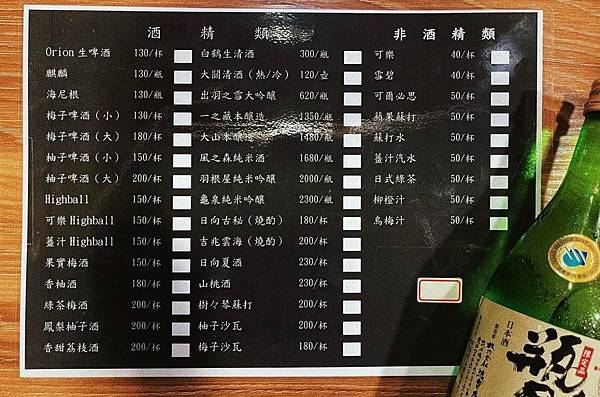 酒精類 非酒精類
Orion 生啤酒 130/杯 白鶴生清酒 300/瓶 可樂 40/杯
麒麟 130/瓶 大關清酒（熱/冷） 120/壺 雪碧 40/杯
海尼根 130/瓶 出羽之雪大吟釀 620/瓶 可爾必思 50/杯
梅子啤酒（小） 130/杯 一之藏本釀造 1350/瓶 蘋果蘇打 50/杯
梅子啤酒（大） 180/杯 大山本釀造 1480/瓶 蘇打水 50/杯
柚子啤酒（小） 150/杯 風之森純米酒 1680/瓶 薑汁汽水 50/杯
柚子啤酒（大） 200/杯 羽根屋純米吟釀 2000/瓶 日式綠茶 50/杯
Highball 150/杯 龜泉純米吟釀 2300/瓶 柳橙汁 50/杯
可樂 Highball 150/杯 日向古秘（燒酌） 180/杯 烏梅汁 50/杯
薑汁 Highball 150/杯 吉兆雲海（燒酌） 200/杯
果實梅酒 150/杯 日向夏酒 230/杯
香柚酒 180/杯 山桃酒 230/杯
綠茶梅酒 200/杯 樹々琴蘇打 200/杯
鳳梨柚子酒 200/杯 柚子沙瓦 200/杯
香甜荔枝酒 200/杯 梅子沙瓦 180/杯
日本酒
限定品
瓶